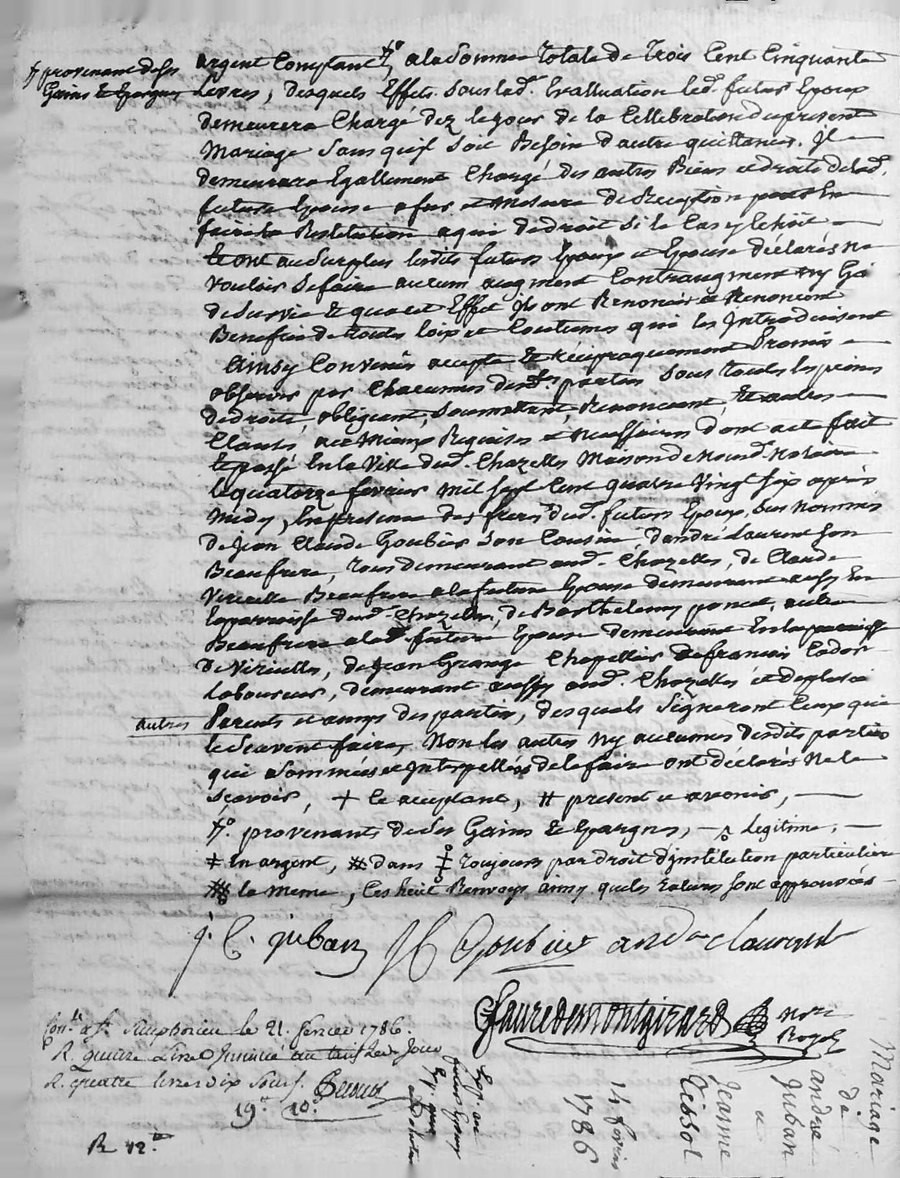 provenant de ses
Gains & Epargnes
argent Comptant, a la Somme totale de trois Cent Cinquante
Livres, desquels Effets Sous lad. Evalluation led. futur Epoux
demeurera Chargé dez le jour de la Cellebration du present
Mariage Sans qu'il soit Besoin d'autre quittance. Il
demeurera Egallement Chargé des autres Biens et droits de lad.
future Epouse a fur et Mesure de Reception pour En
faire la Restitution a qui de droit Si le Cas y Echoit
Et ont au Surplus lesdits futurs Epoux et Epouse déclarés ne
vouloir Se faire aucun augment Contraugment ny Gain
de Survie Et qua cet Effet ils ont Renoncés et Renoncent
Benefice de toutes loix et Coutumes qui les Introduisent
Ainsy Convenu accepté & Réciproquement Promis
observer par Chacunnes des d. parties Sous toutes les peines
de droits, obligeant, Soumettant, Renonceant, Et autres
Clauses au Mieux Requises et Necessaires dont acte fait
Et passé En la Ville dud. Chazelles Maison de Nousd. Notaire
le quatorze fevrier Mil Sept Cent quatre Vingt Six après
Midy, En presence des freres dud. futur Epoux, Sus Nommés
de Jean Claude Goubier Son Cousin d'andré Laurent Son
Beaufrere, tous demeurant aud. Chazelles, de Claude
Vericelle Beaufrere a la future Epouse demeurant aussy En
la parroisse dud. Chazelles, de Barthelemy poncet, autre
Beaufrere a la d. future Epouse demeurant En la parroisse
de Viricelles, de Jean Grange Chapellier de francois
laboureur, demeurant aussy aud. Chazelles et de plusieurs
autres Parents et amys des parties, desquels Signeront Ceux qui
le Scavent faire, Non les autres Ny aucunes desdits parties
qui Sommés et Interpellés de le faire ont déclarés Ne le
Scavoir, + le acceptant, # present et avonis,
provenants de Ses Gains & Epargnes, legitime,
En argent, dans toujours par droit d'institution particuliere
la meme, les huit Renvoys ainsy que les ratures sont approuvés
j. C. juban J C Goubier andre laurent
faure de montgirard Not.re
Royal
Con.lé a St. Simphorien le 21. fevrier 1786.
R. quatre livres dix Sous.
19.# 10.s
R 12.s
14 fevrier
1786
Mariage
de
andré
Juban
et
Jeanne
Tissot